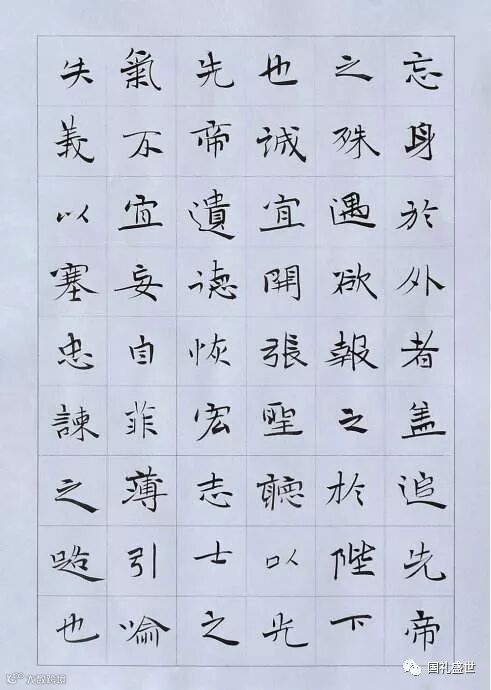 忘身於外者盖追先帝
之殊遇欲報之於陛下
也誠宜開張聖聽以光
先帝遺德恢宏志士之
氣不宜妄自菲薄引喻
失義以塞忠諫之路也
国礼盛世